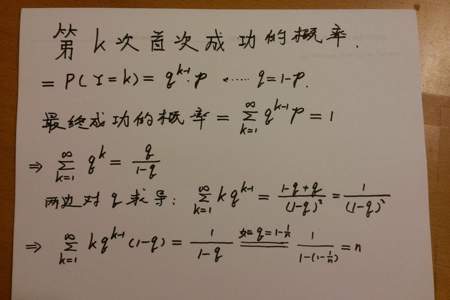 第 k 次首次成功的概率.
= P(Y=k) = q^{k-1}·p ····· q=1-p.
最终成功的概率 = \sum_{k=1}^{∞} q^{k-1} p = 1
⇒ \sum_{k=1}^{∞} q^k = \frac{q}{1-q}
两边对 q 求导: \sum_{k=1}^{∞} k q^{k-1} = \frac{1-q+q}{(1-q)^2} = \frac{1}{(1-q)^2}
⇒ \sum_{k=1}^{∞} k q^{k-1} (1-q) = \frac{1}{1-q} \xlongequal{如 q=1-\frac{1}{n}} \frac{1}{1-(1-\frac{1}{n})} = n